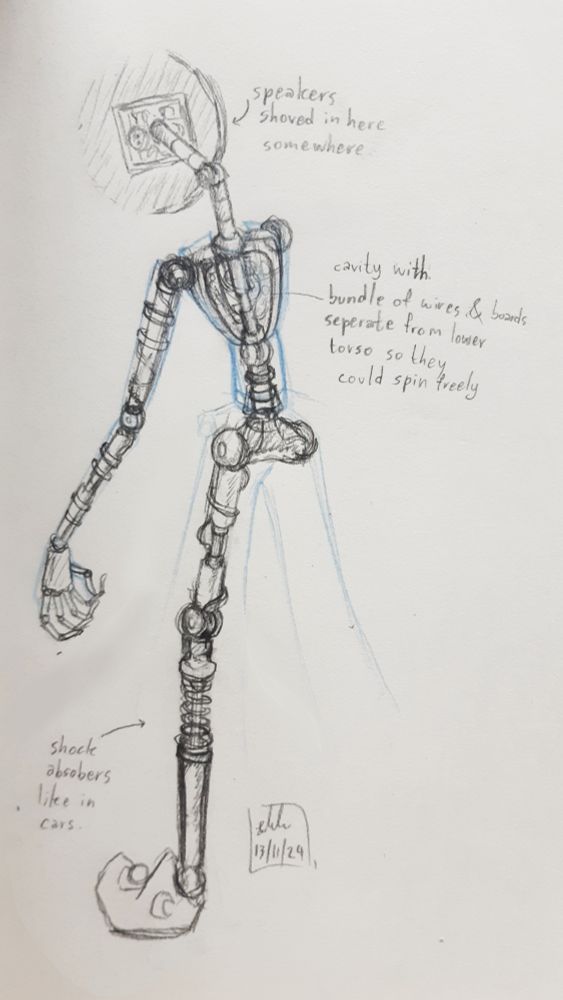 speakers
shoved in here
somewhere
cavity with
bundle of wires & boards
seperate from lower
torso so they
could spin freely
shock
absobers
like in
cars.
13/11/24